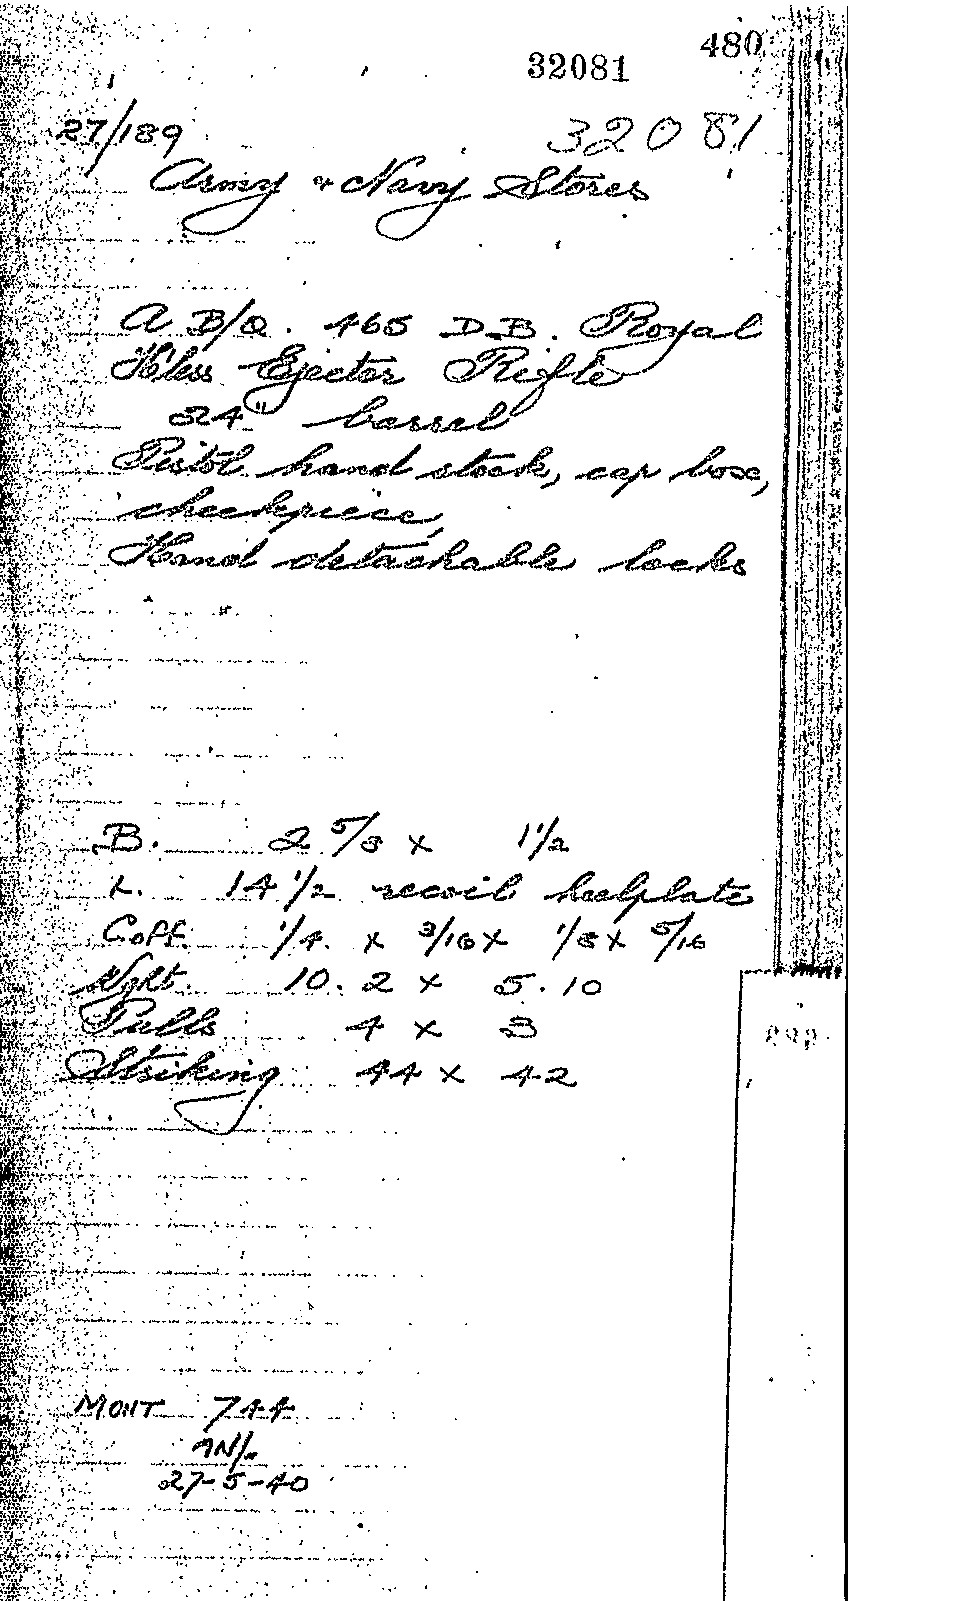 480
32081
27/189 32081
Army & Navy Stores
A B/Q. 465 D.B. Royal
H'less Ejector Rifle
24" barrel
Pistol hand stock, cap box,
cheekpiece,
Hand detachable locks
B. 2 5/8 x 1 1/2
L. 14 1/2 recoil heelplate
C.off. 1/4. x 3/16 x 1/8 x 5/16
Wght. 10.2 x 5.10
Pulls 4 x 3
Striking 44 x 42
MONT 744
27-5-40